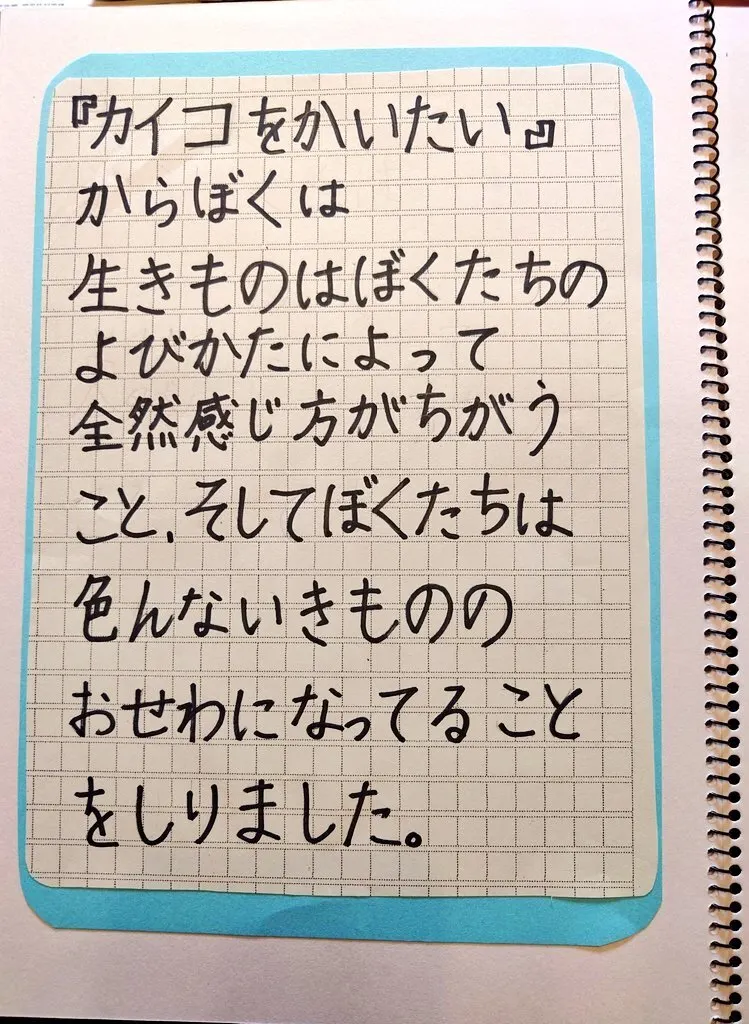 『カイコをかいたい』
からぼくは
生きものはぼくたちの
よびかたによって
全然感じ方がちがう
こと、そしてぼくたちは
色んないきものの
おせわになってること
をしりました。